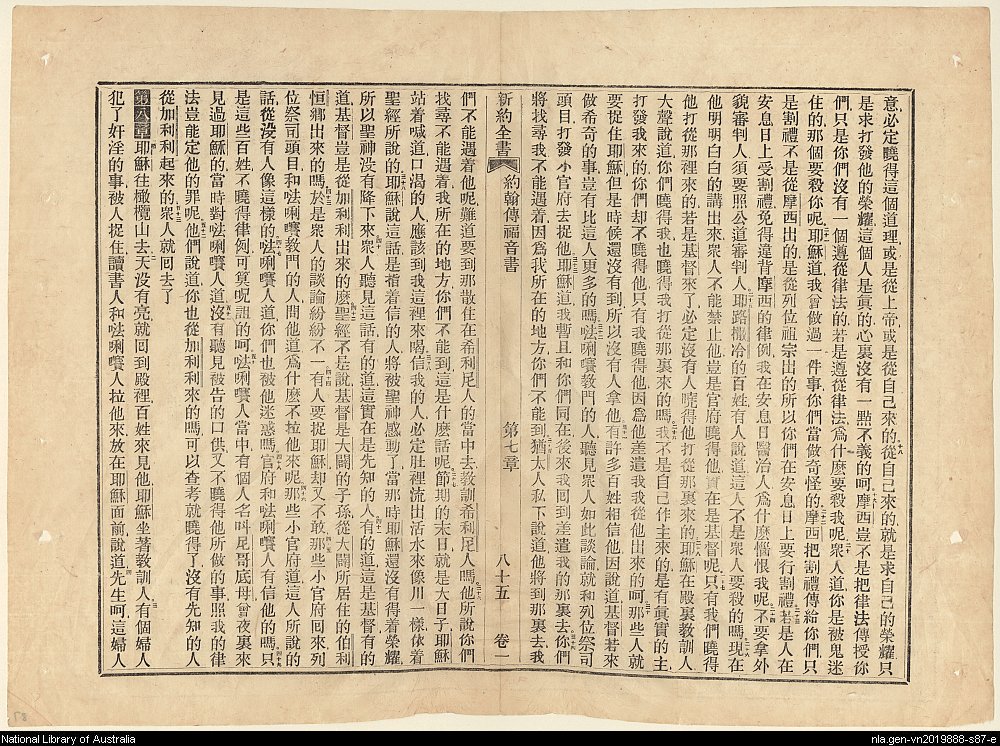 意必定曉得這個道理或是從上帝或是從自己來的從自己來的就是求自己的榮耀只
是求打發他的榮耀這個人是眞的心裏沒有一點不義的呵摩西豈不是把律法傳授你
們只是你們沒有一個遵從律法的若是遵從律法爲什麽要殺我呢衆人道你是被鬼迷
住的那個要殺你呢耶穌道我曾做過一件事你們當做奇怪的摩西把割禮傳給你們只
是割禮不是從摩西出的是從列位祖宗出的所以你們在安息日上要行割禮若是人在
安息日上受割禮免得違背摩西的律例我在安息日醫治人爲什麽惱恨我呢不要拿外
貌審判人須要照公道審判人耶路撒冷的百姓有人說道這人不是衆人要殺的嗎現在
他明明白白的講出來衆人不能禁止他豈是官府曉得他實在是基督呢只有我們曉得
他打從那裡來的若是基督來了必定沒有人曉得他打從那裏來的耶穌在殿裏教訓人
大聲說道你們曉得我也曉得我打從那裏來的嗎我不是自己作主來的是有眞實的主
打發我來的你們却不曉得他只有我曉得他因爲他差遣我我從他出來的呵那些人就
要捉住耶穌但是時候還沒有到所以沒有人拿他有許多百姓相信他因說道基督若來
做希奇的事豈有比這人更多的嗎㕹唎㘔教門的人聽見衆人如此談論就和列位祭司
頭目打發小官府去捉他耶穌道我暫且和你們同在後來我回到差遣我的那裏去你們
將找尋我不能遇着因爲我所在的地方你們不能到猶太人私下說道他將到那裏去我
新約全書 約翰傳福音書 第七章 八十五 卷一
們不能遇着他呢難道要到那散住在希利尼人的當中去教訓希利尼人嗎他所說你們
找尋不能遇着我所在的地方你們不能到這是什麽話呢節期的末日就是大日子耶穌
站着喊道口渴的人應該到我這裡來喝信我的人必定肚裡流出活水來像川一樣依着
聖經所說的耶穌說這話是指着信的人將被聖神感動了當那時耶穌還沒有得着榮耀
所以聖神没有降下來衆人聽見這話有的道這實在是先知的人有的道這是基督有的
道基督豈是從加利利出來的麽聖經不是說基督是大闢的子孫從大闢所居住的伯利
恒鄉出來的嗎於是衆人的談論紛紛不一有人要捉耶穌却又不敢那些小官府回來列
位祭司頭目和㕹唎㘔教門的人問他道爲什麽不拉他來呢那些小官府道這人所說的
話從没有人像這樣的㕹唎㘔人道你們也被他迷惑嗎官府和㕹唎㘔人有信他的嗎只
是這些百姓不曉得律例可算呪詛的呵㕹唎㘔人當中有個人名叫尼哥底母曾夜裏來
見過耶穌的當時對㕹唎㘔人道沒有聽見被告的口供又不曉得他所做的事照我的律
法豈能定他的罪呢他們說道你也從加利利來的嗎可以查考就曉得了沒有先知的人
從加利利起來的衆人就回去了
第八章耶穌往橄欖山去天没有亮就回到殿裡百姓來見他耶穌坐著教訓人有個婦人
犯了奸淫的事被人捉住讀書人和㕹唎㘔人拉他來放在耶穌面前說道先生呵這婦人
National Library of Australia
nla.gen-vn2019888-s87-e